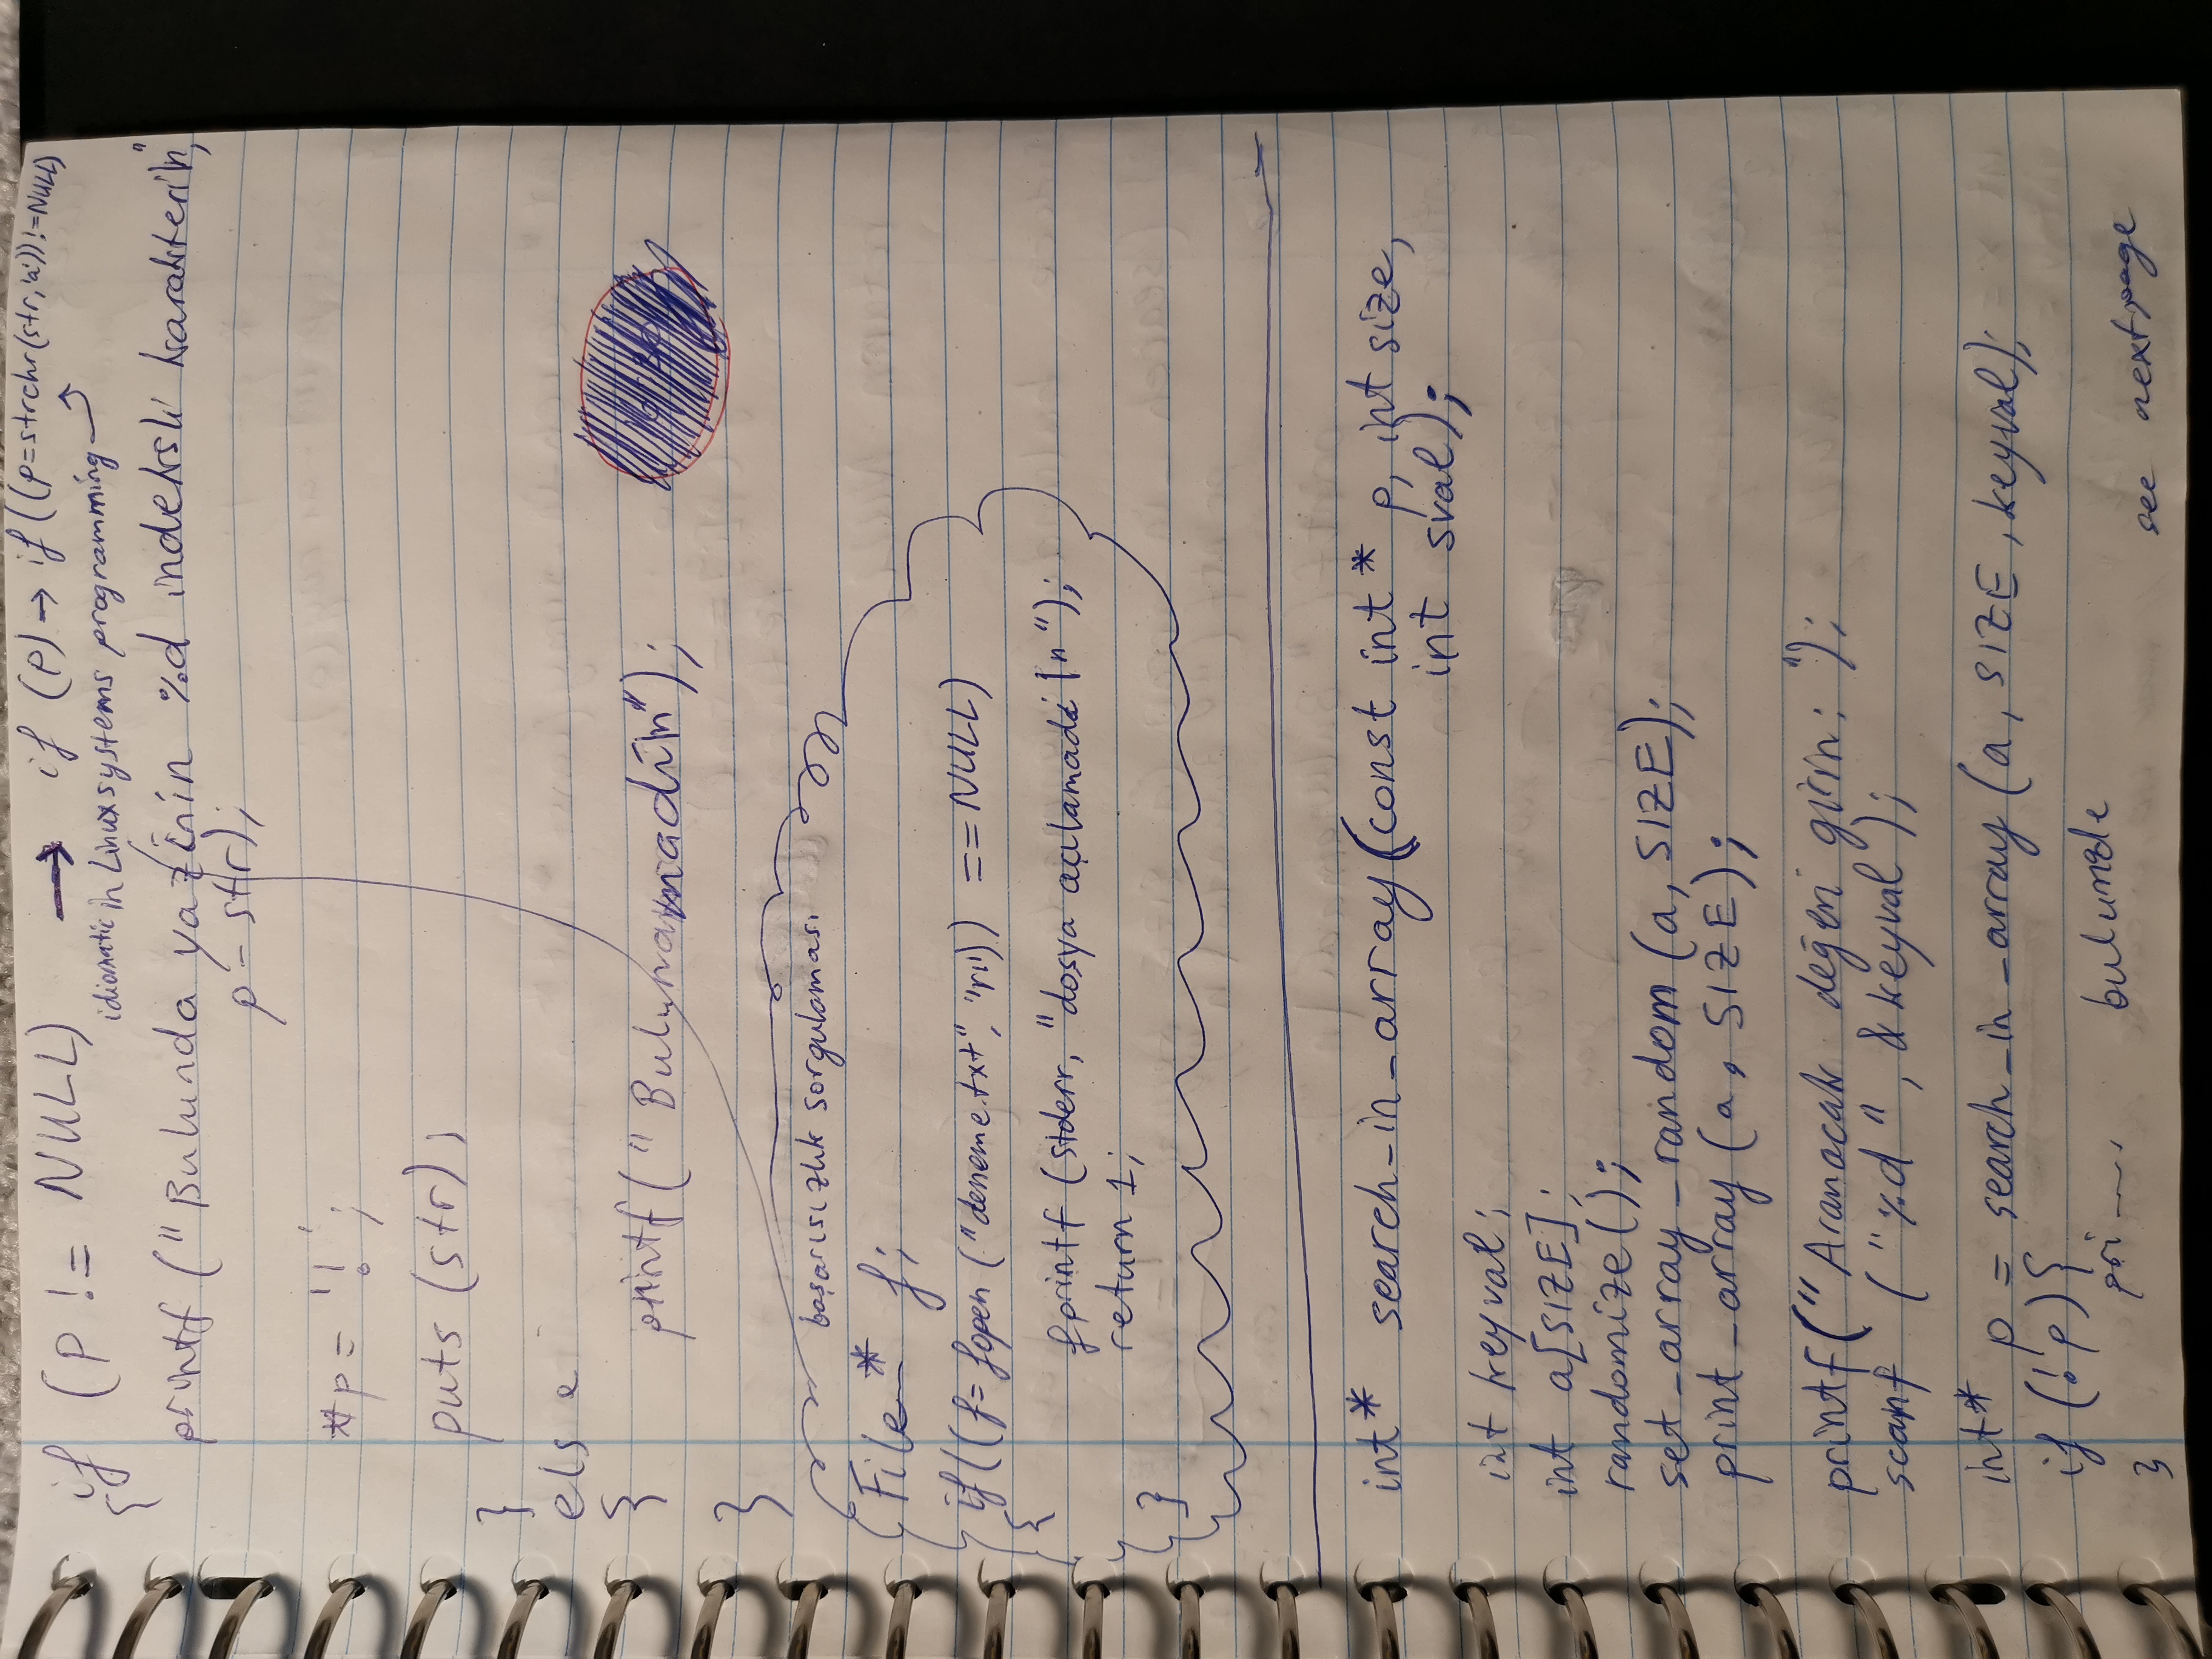 if (p != NULL) → if (p) → if ((p=strchr(str,'a')) != NULL)
idiomatic in Linux systems programming
{
printf ("Bulunda yazinin %d indeksli karakteri\n",
p - str);
*p = '!';
puts (str);
}
else
{
printf ("Bulunamadi\n");
}
başarısızlık sorgulaması
File* f;
if ((f= fopen ("deneme.txt", "r")) == NULL)
{
fprintf (stderr, "dosya açılamadı \n");
return 1;
}
int* search_in_array(const int* p, int size,
int sval);
int keyval;
int a[SIZE];
randomize();
set_array_random (a, SIZE);
print_array (a, SIZE);
printf("Aranacak değeri girin: ");
scanf ("%d", &keyval);
int* p = search_in_array (a, SIZE, keyval);
if (!p) {
pri....
}
see next page